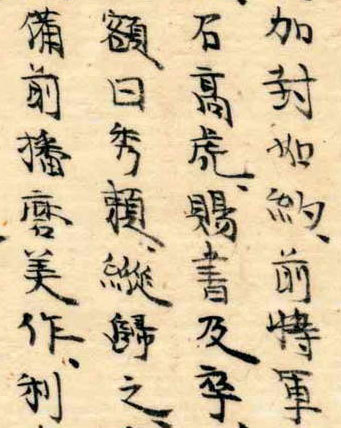 加封如約、前將軍
石高虎、賜書及卒
額曰秀賴、縱歸之
備前播磨美作、利